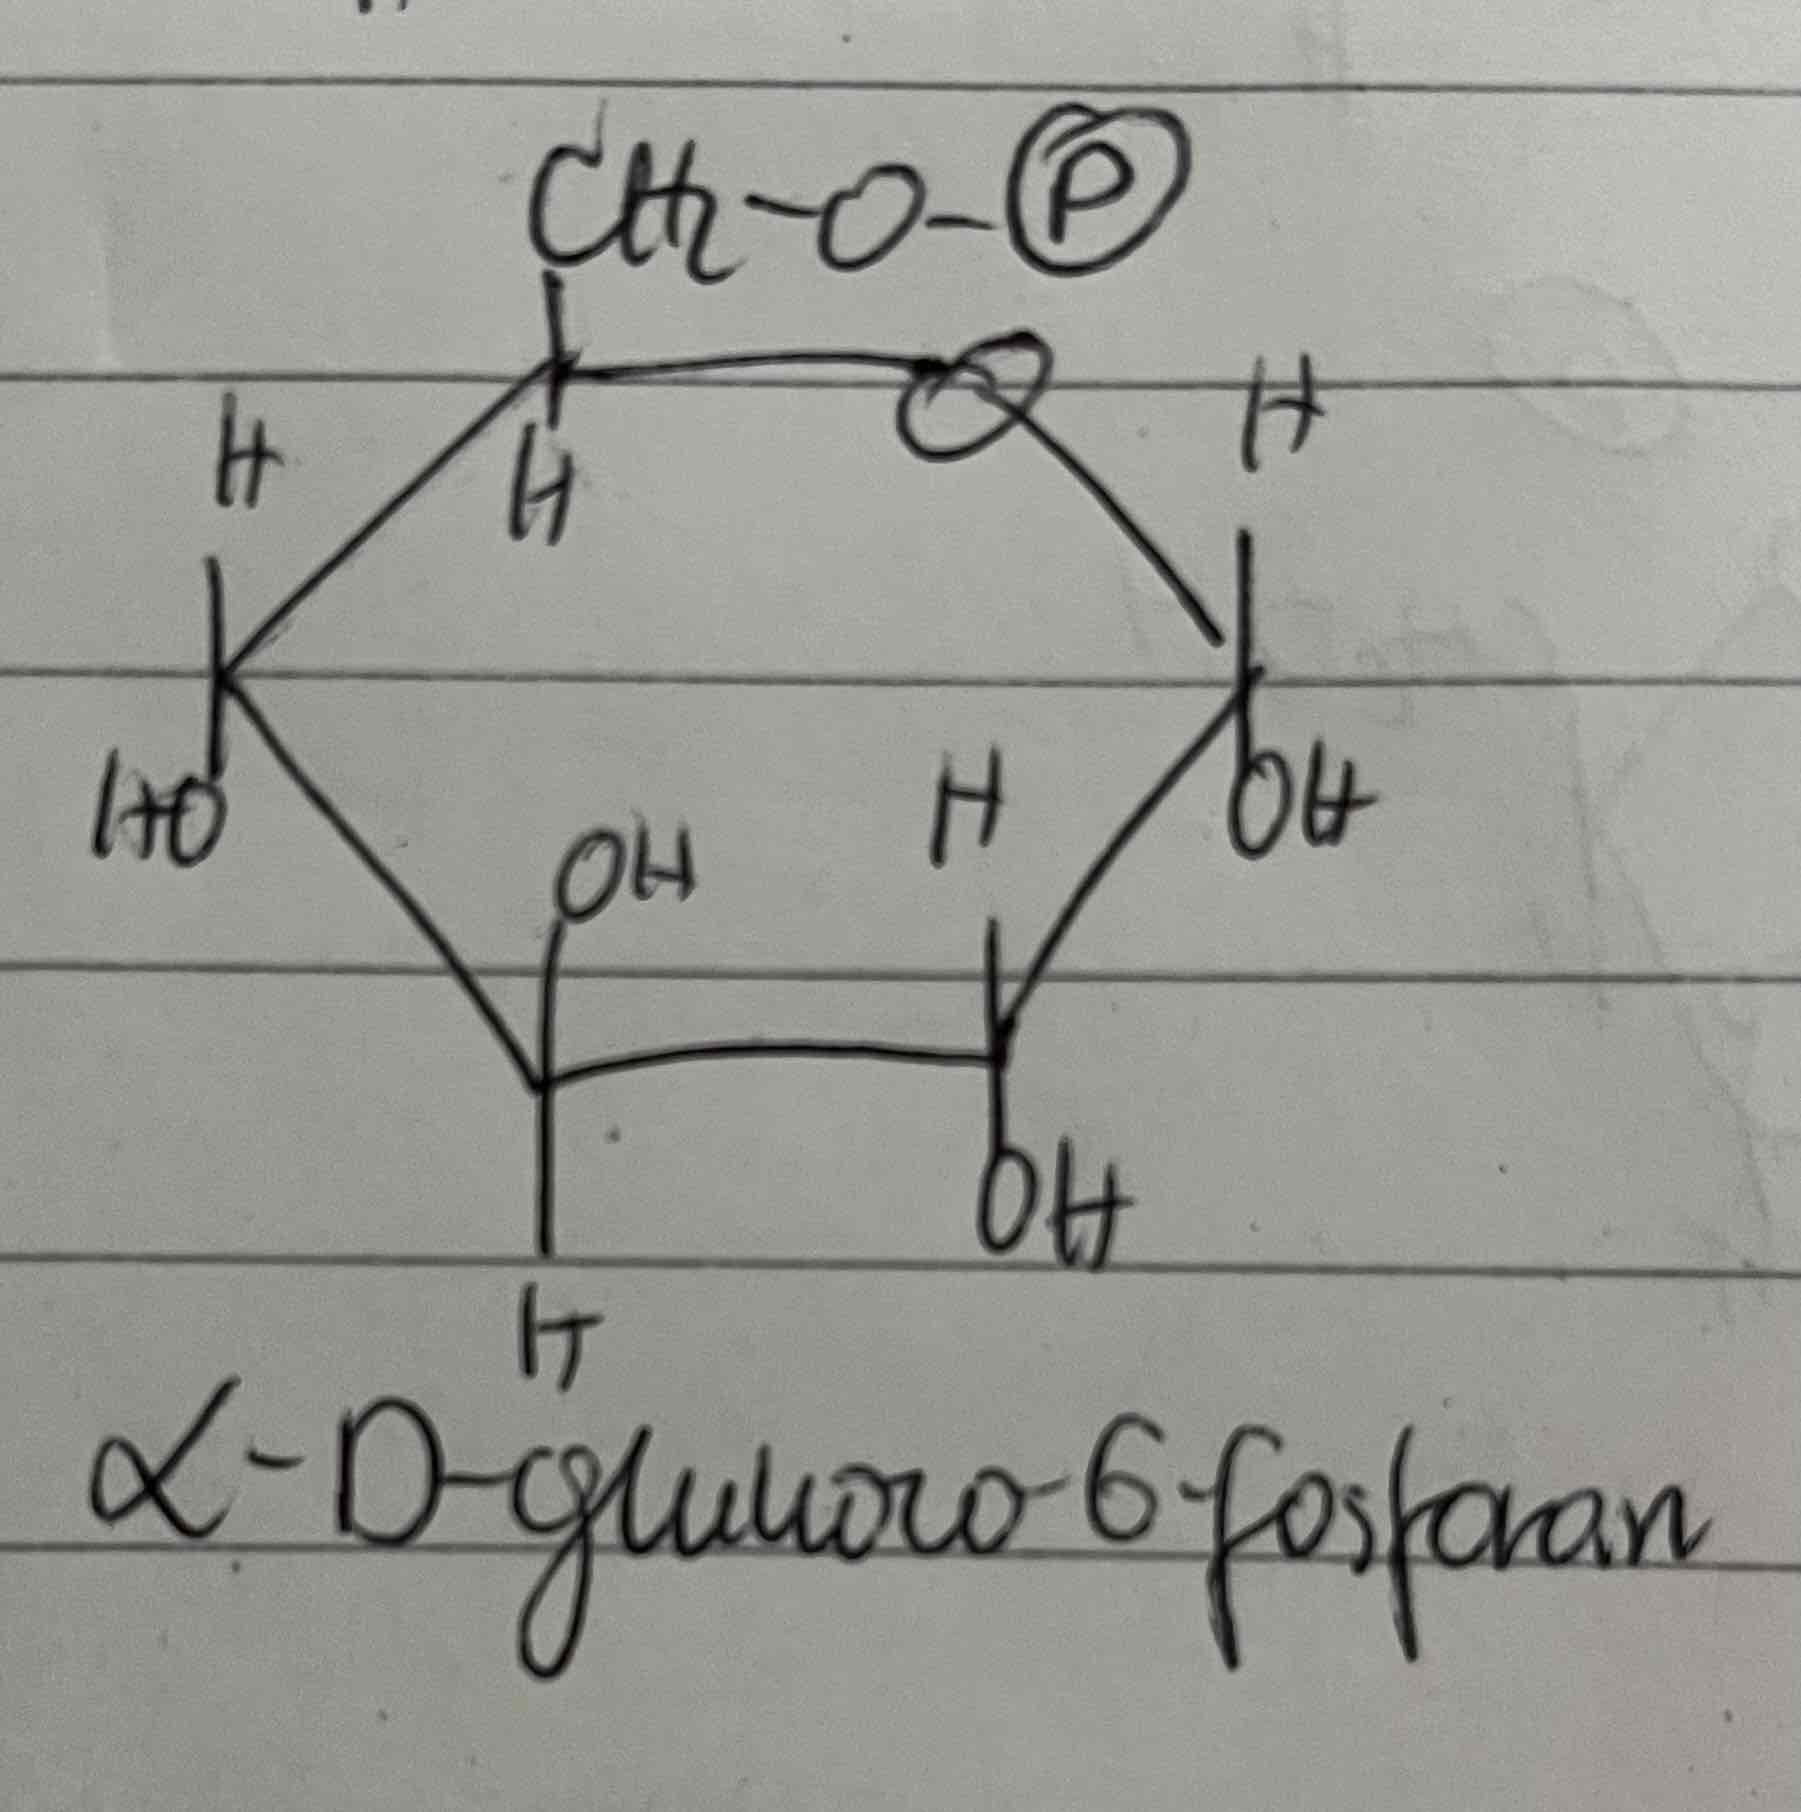 CH2-O-P
H
H
H
HO
OH
H
OH
OH
H
α-D-glukozo-6-fosforan